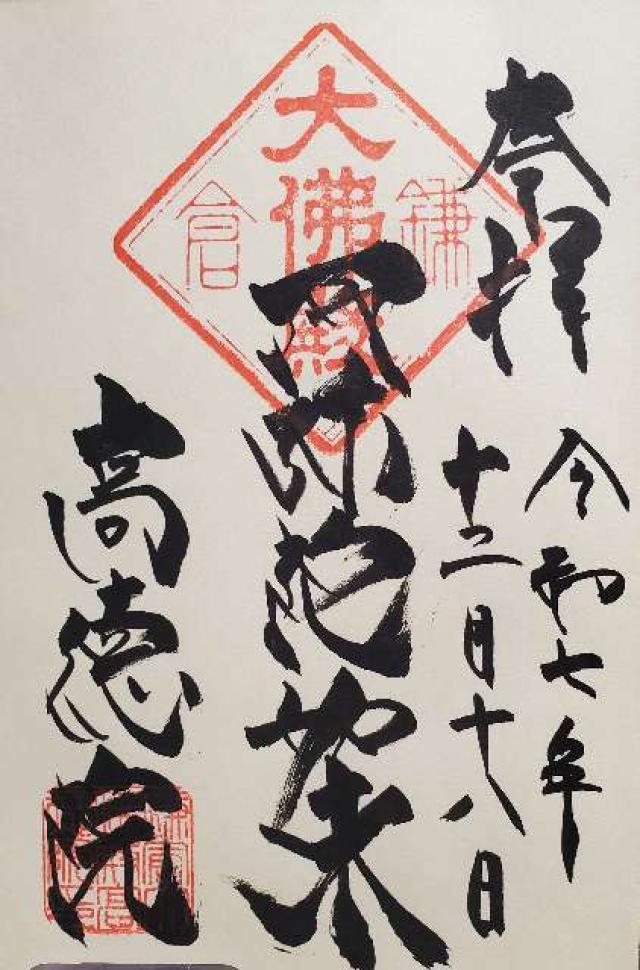 奉拝
令和七年
十二月十八日
阿弥陀如来
高徳院
鎌倉
大佛殿